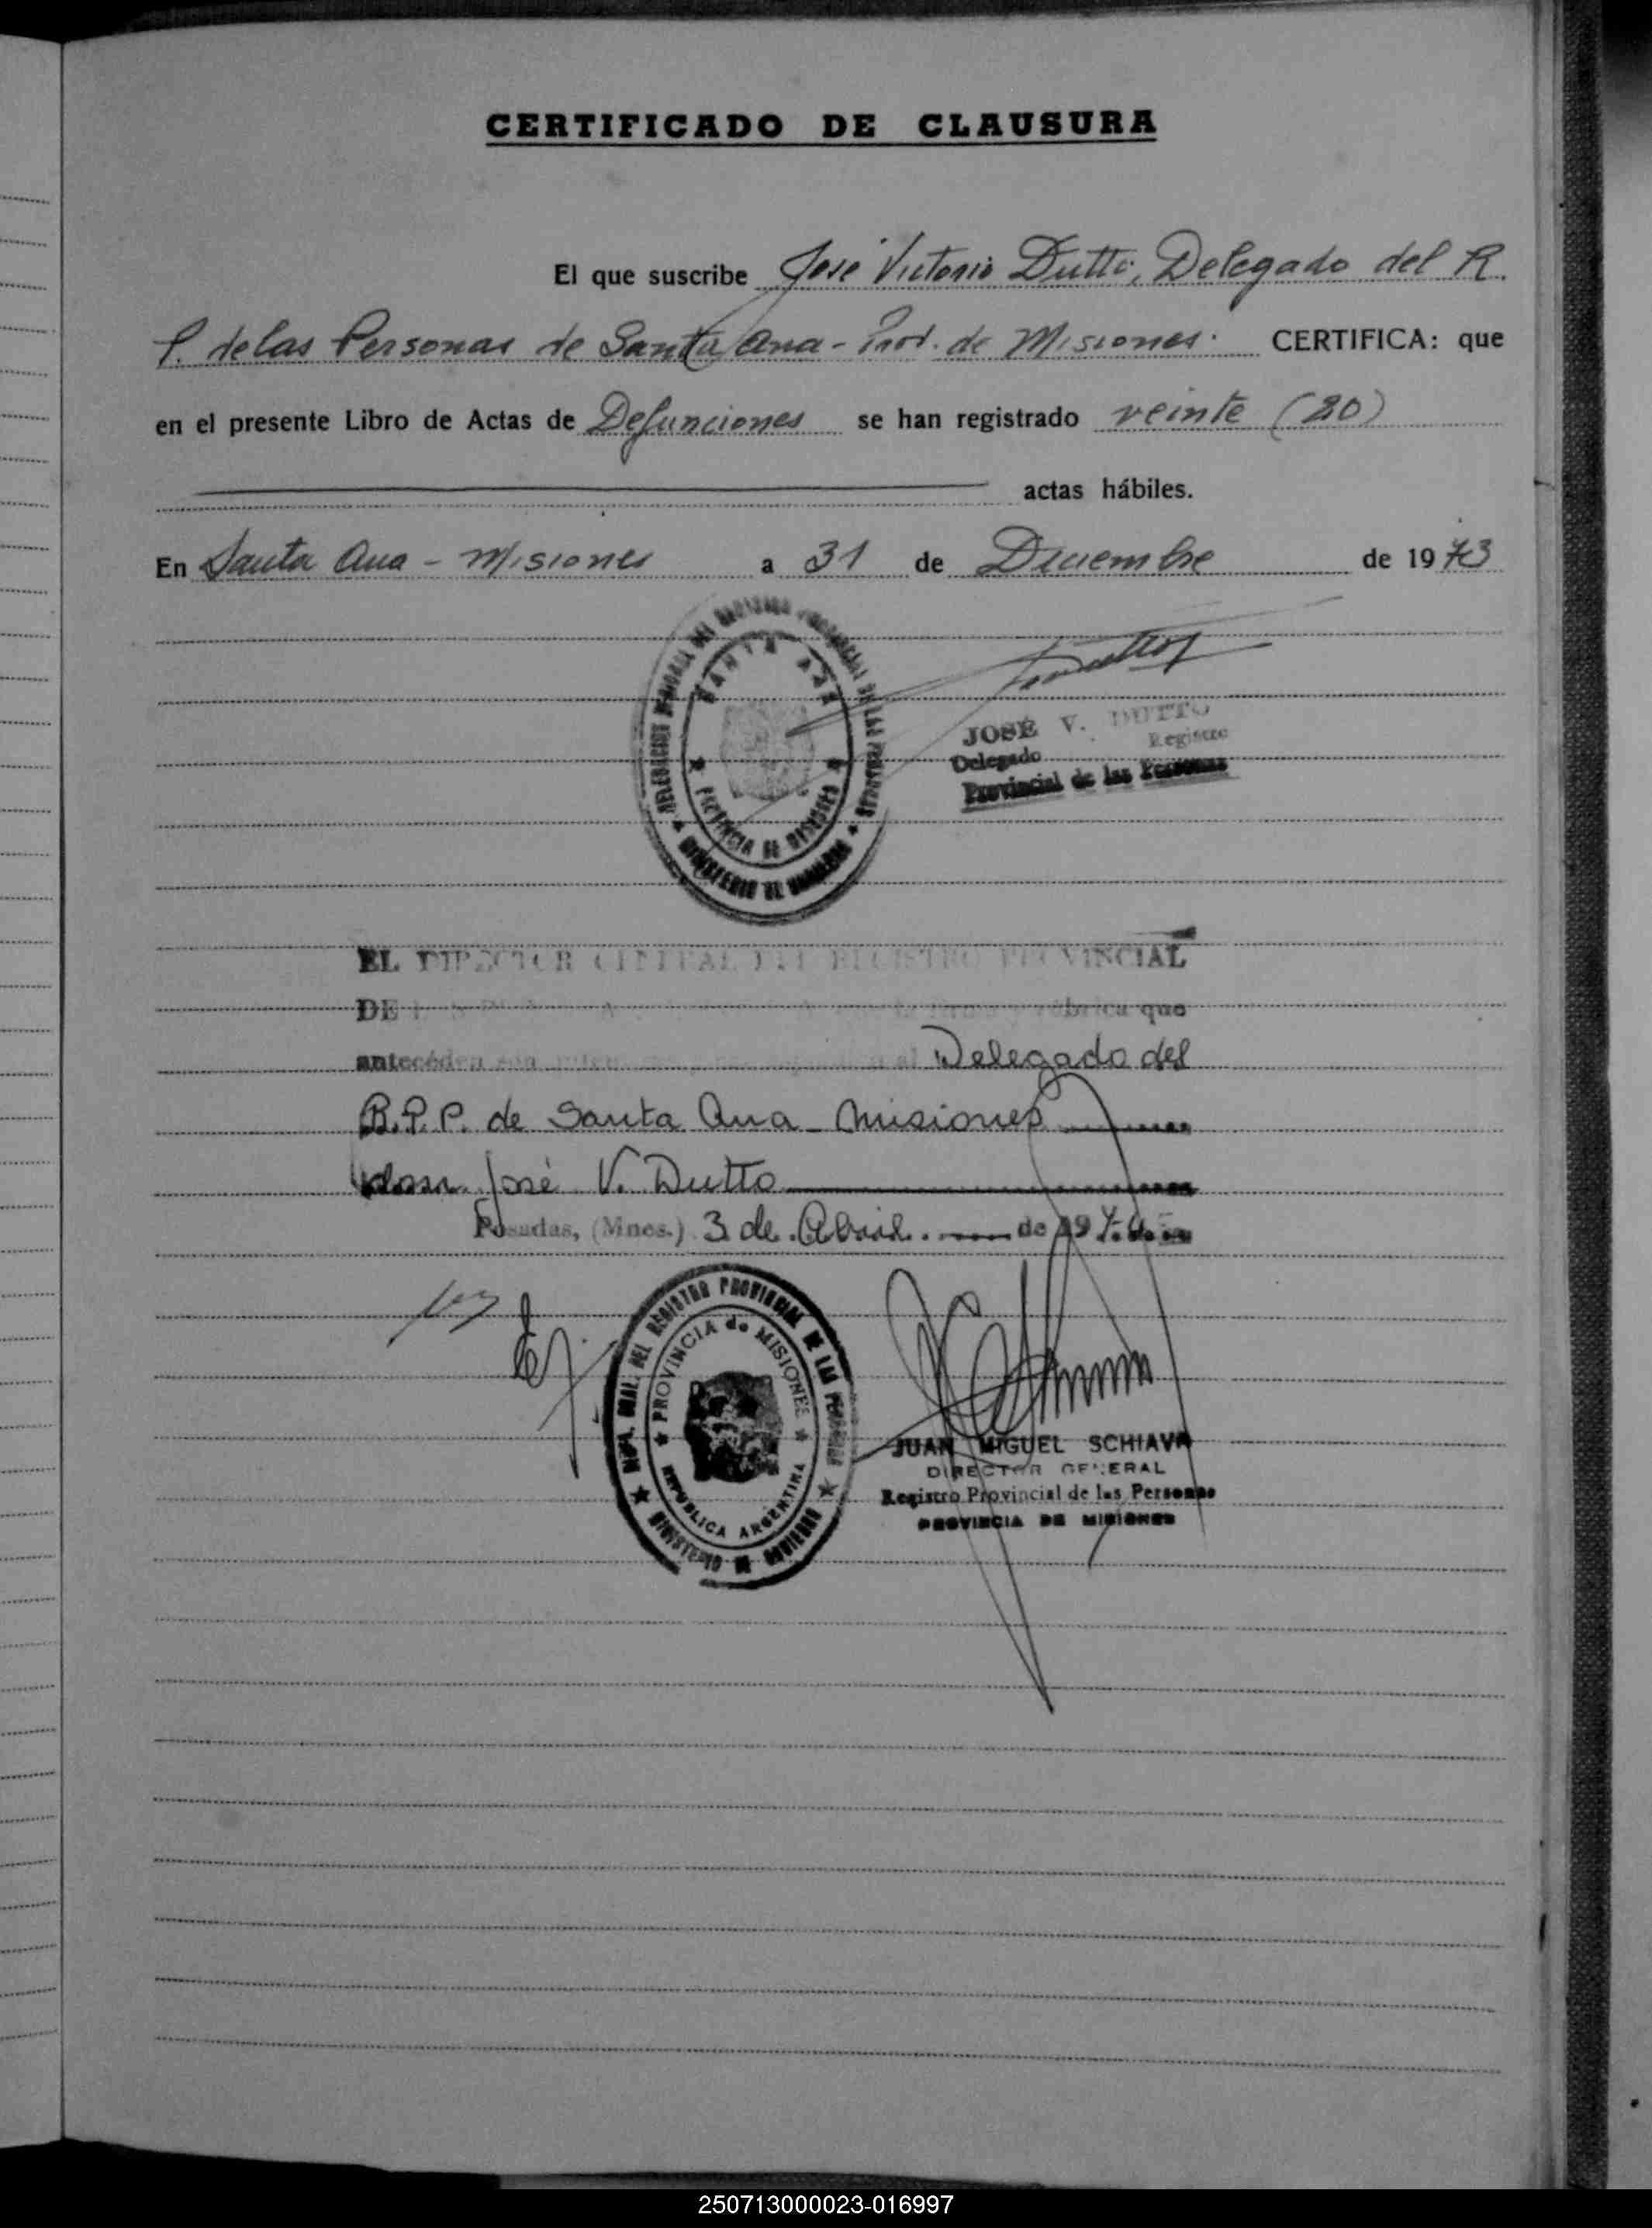 CERTIFICADO DE CLAUSURA
El que suscribe José Victorio Dutto, Delegado del R.
P. de las Personas de Santa Ana - Prov. de Misiones. CERTIFICA: que
en el presente Libro de Actas de Defunciones se han registrado veinte (20)
actas hábiles.
En Santa Ana - Misiones a 31 de Diciembre de 1973
SANTA ANA
PROVINCIA DE MISIONES
JOSÉ V. DUTTO
Delegado Registro
Provincial de las Personas
EL DIRECTOR GENERAL DEL REGISTRO PROVINCIAL
DE rúbrica que
anteceden son al Delegado del
R.P.P. de Santa Ana - Misiones
don José V. Dutto
Posadas, (Mnes.) 3 de Abril de 197
DEL REGISTRO PROVINCIAL DE LAS PERSONAS
PROVINCIA de MISIONES
REPUBLICA ARGENTINA
MINISTERIO DE GOBIERNO
JUAN MIGUEL SCHIAVA
DIRECTOR GENERAL
Registro Provincial de las Personas
PROVINCIA DE MISIONES
250713000023-016997